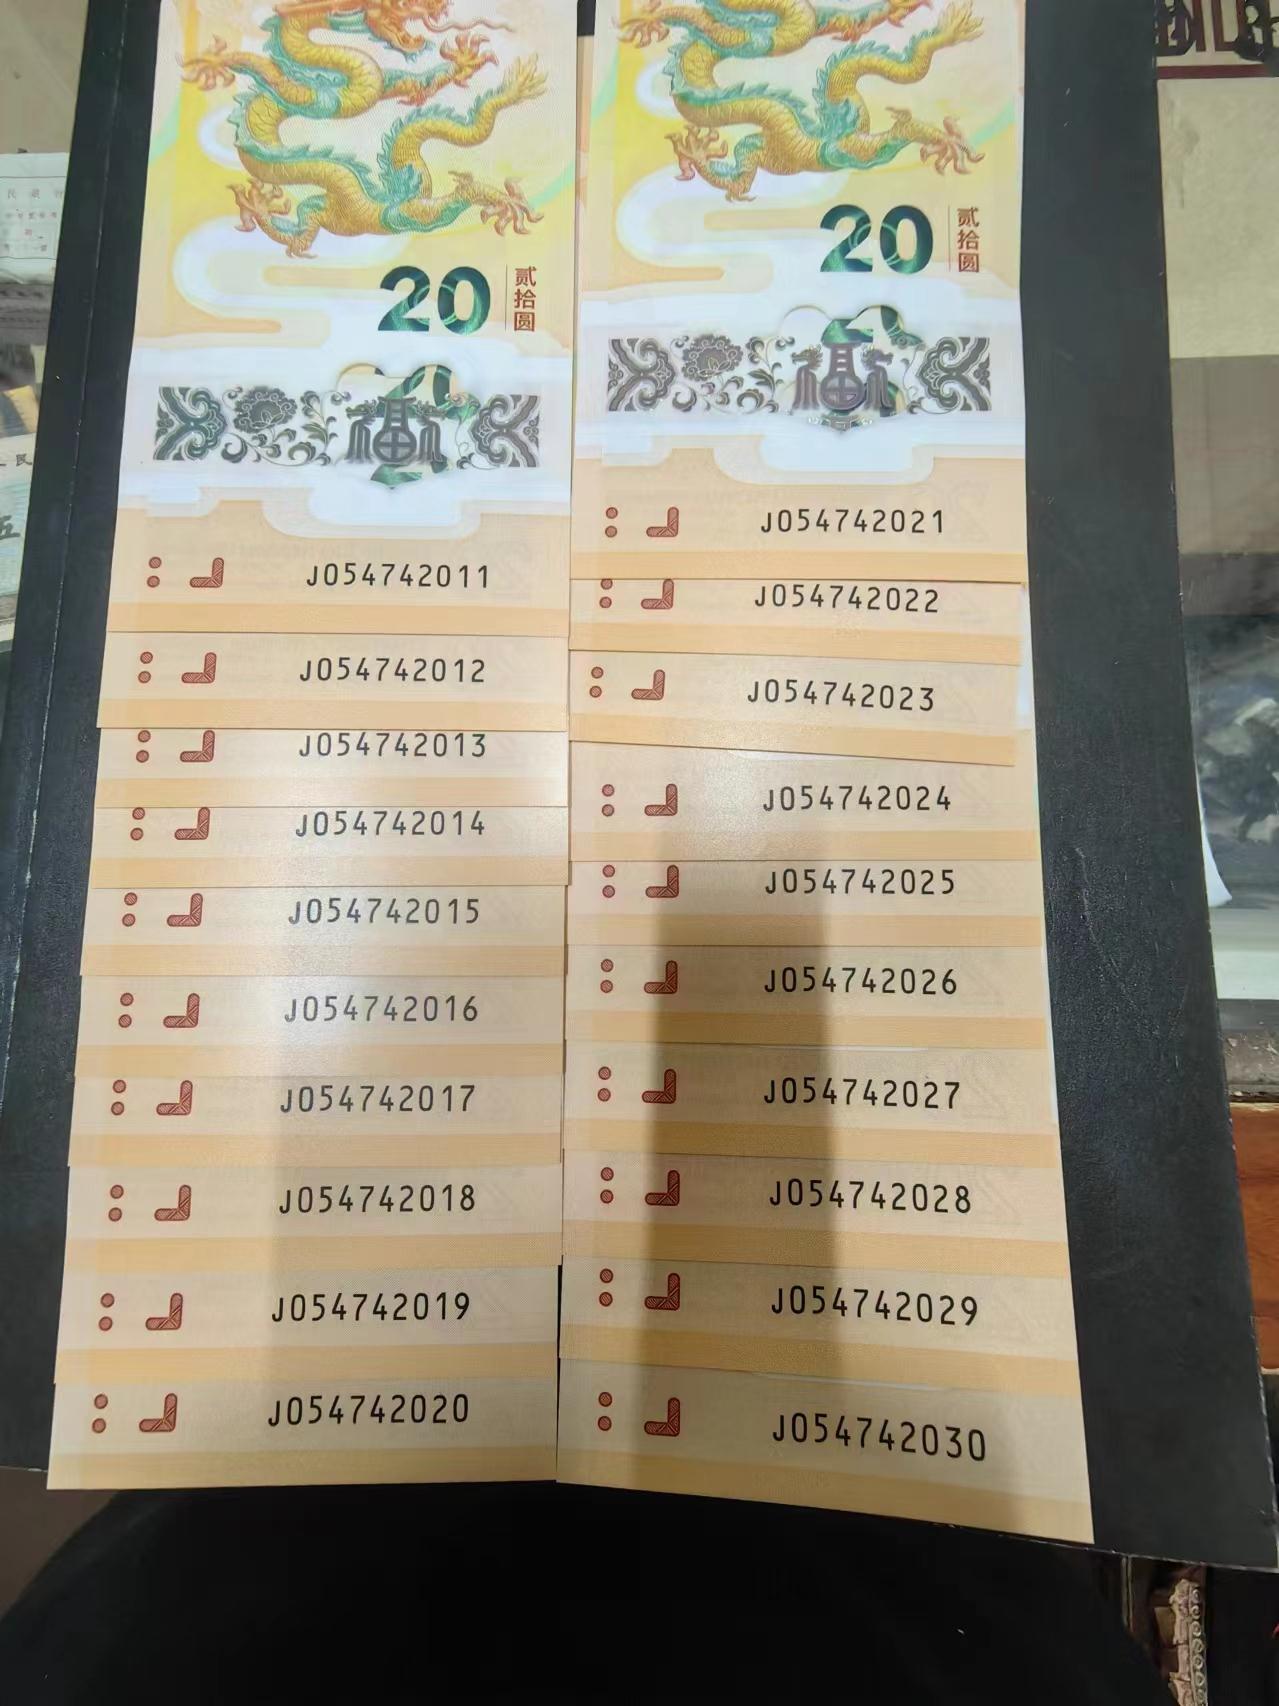 20
贰拾圆
福
J054742011
J054742012
J054742013
J054742014
J054742015
J054742016
J054742017
J054742018
J054742019
J054742020
20
贰拾圆
福
J054742021
J054742022
J054742023
J054742024
J054742025
J054742026
J054742027
J054742028
J054742029
J054742030
民
五